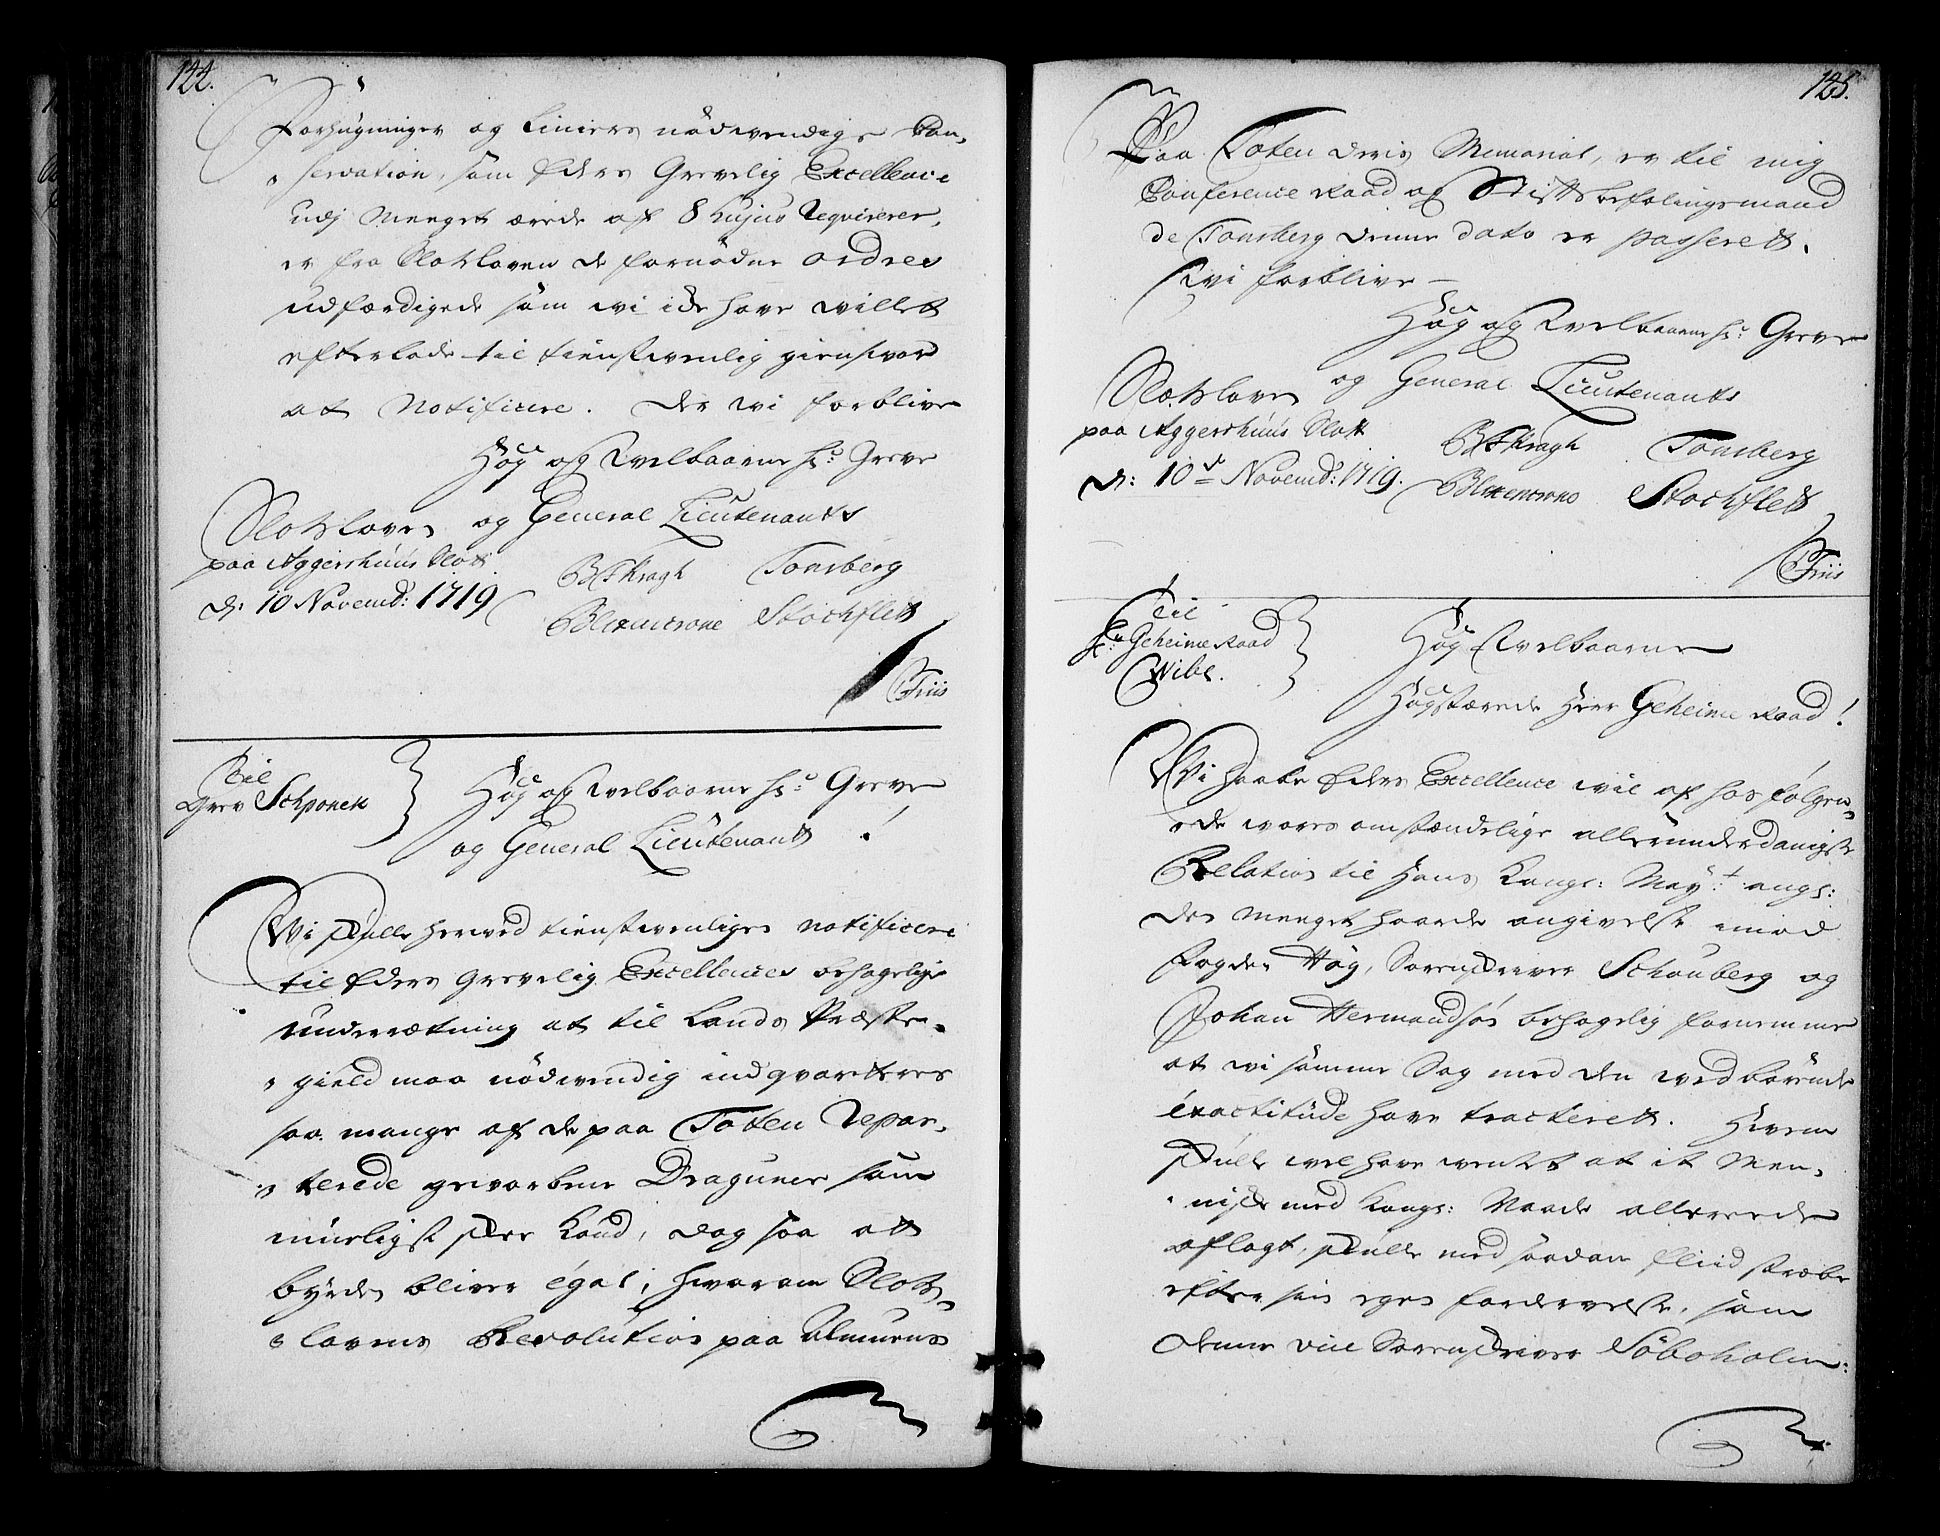 144.
Forhugninger og Liniers nödwendige Con,
servation, som Eders Grevelig Excellence
udj Meeget ærede af 8 hujus Reqvirerer,
er fra Slotsloven de fornödne ordres
udfærdigede som wi icke have willet
efterlade til tienstwenlig giensvar
at Notificere. Der wi forblive
Høg og Welbaarne Hr: Greve
og General Lieutenants
Slotsloven
paa Aggershuus Slott
d: 10 Novemb: 1719
B T Kragh Tonsberg
Blixencrone Stockfleth
/ Friis
Til
Grev Schponek
Høg og Welbaarne Hr: Greve
og General Lieutenant!
Wi skulle herved tienstwenligen notificere
til Eders Grevelig Excellences behagelige
Underretning at til Lands Præste,
gield maa nödwendig indqvarteres
saa mange af de paa Toten Repar,
terede gevorbene Draguner som
mueligst skee kand, dog saa att
byrden bliver egal, hvorom Slots,
lovens Resolution paa Almuens
145.
Paa Toten deris Memorial, er til mig
Conference Raad og Stiftsbefalingsmand
de Tonsberg denne dato er passerett.
Wi forblive
Høg og Welbaarne Hr: Greve
og General Lieutenants
Slotsloven
paa Aggershuus Slott
d: 10de Novemb: 1719.
B T Kragh Tonsberg
Blixencrone Stockfleth
/ Friis
Til
Hr: Geheime Raad
Wibe.
Høg Welbaarne
Høgstærede Herr Geheime Raad!
Wi haabe Eders Excellence wil af hosfølgen,
de wores omstændelige allerunderdanigste
Relation til Hans Kongl: Mayt: angl:
den meeget haarde angivelse imod
fogden Høg, Sorenskriver Schouberg og
Johan Hermandsøn behagelig fornemme
at wi samme Sag med den wedbörende
exactitude have tracterett. Hvem
skulle wel have wentet at it Men,
niske med Kongl: Naade allerede
aflagt, skulle med saadan fliid stræbe
efter sin egen fordervelse, som
denne viise Sorenskriver Söboholm: